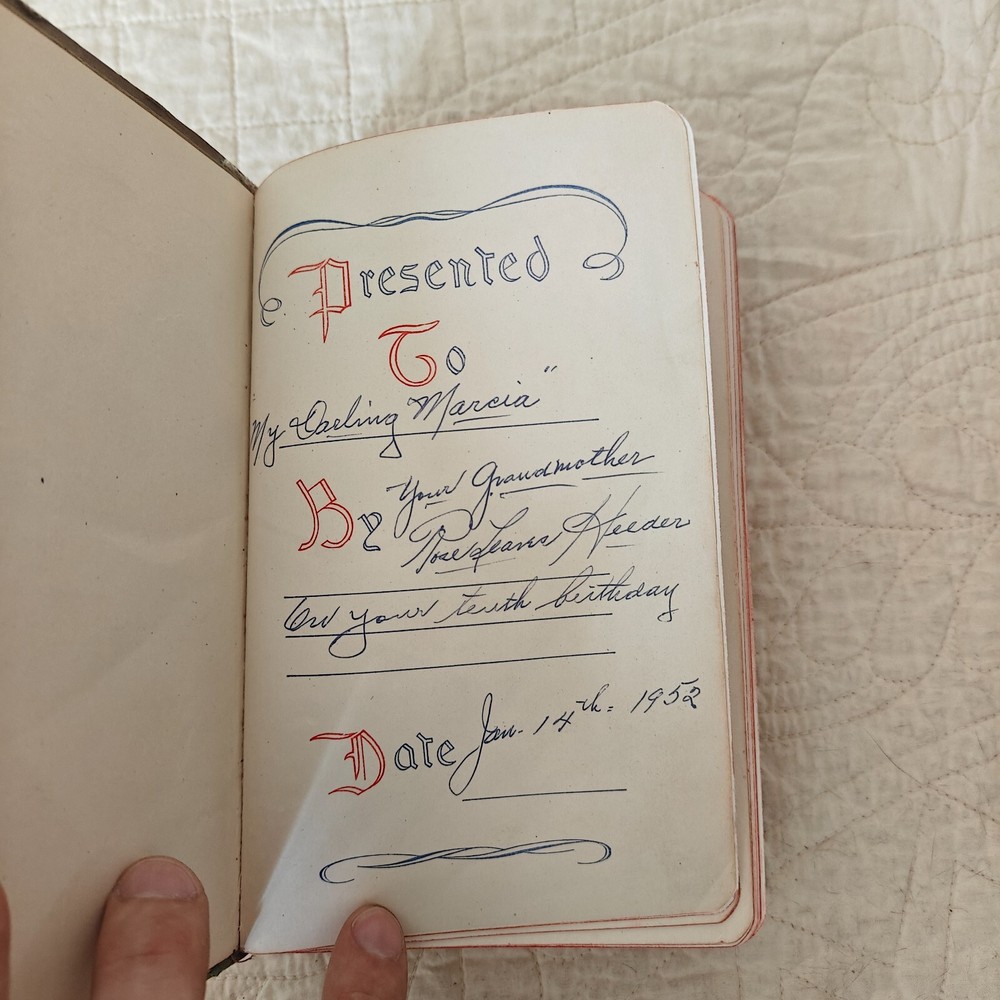 Presented
To
My Darling Marcia"
By Your Grandmother
Rose Leaves Heeder
On your tenth birthday
Date Jan. 14th = 1952